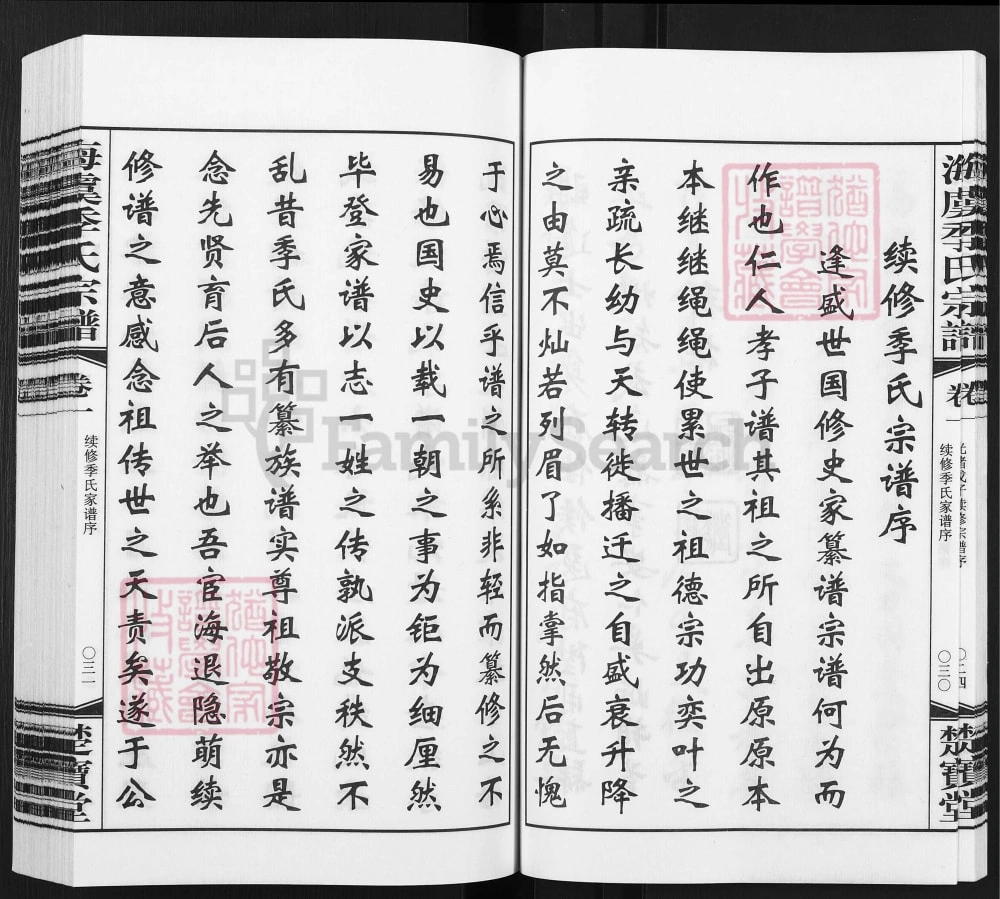 海虞季氏宗譜
卷一
续修季氏家谱序
〇三〇
楚寶堂
续修季氏宗谱序
逢盛世国修史家纂谱宗谱何为而
作也仁人孝子谱其祖之所自出原原本
本继继绳绳使累世之祖德宗功奕叶之
亲疏长幼与夭转徙播迁之自盛衰升降
之由莫不灿若列眉了如指掌然后无愧
于心焉信乎谱之所系非轻而纂修之不
易也国史以载一朝之事为钜为细厘然
毕登家谱以志一姓之传孰派支秩然不
乱昔季氏多有纂族谱实尊祖敬宗亦是
念先贤育后人之举也吾宦海退隐萌续
修谱之意感念祖传世之天责矣遂于公
海虞季氏宗譜
卷一
续修季氏家谱序
〇三一
楚寶堂
FamilySearch